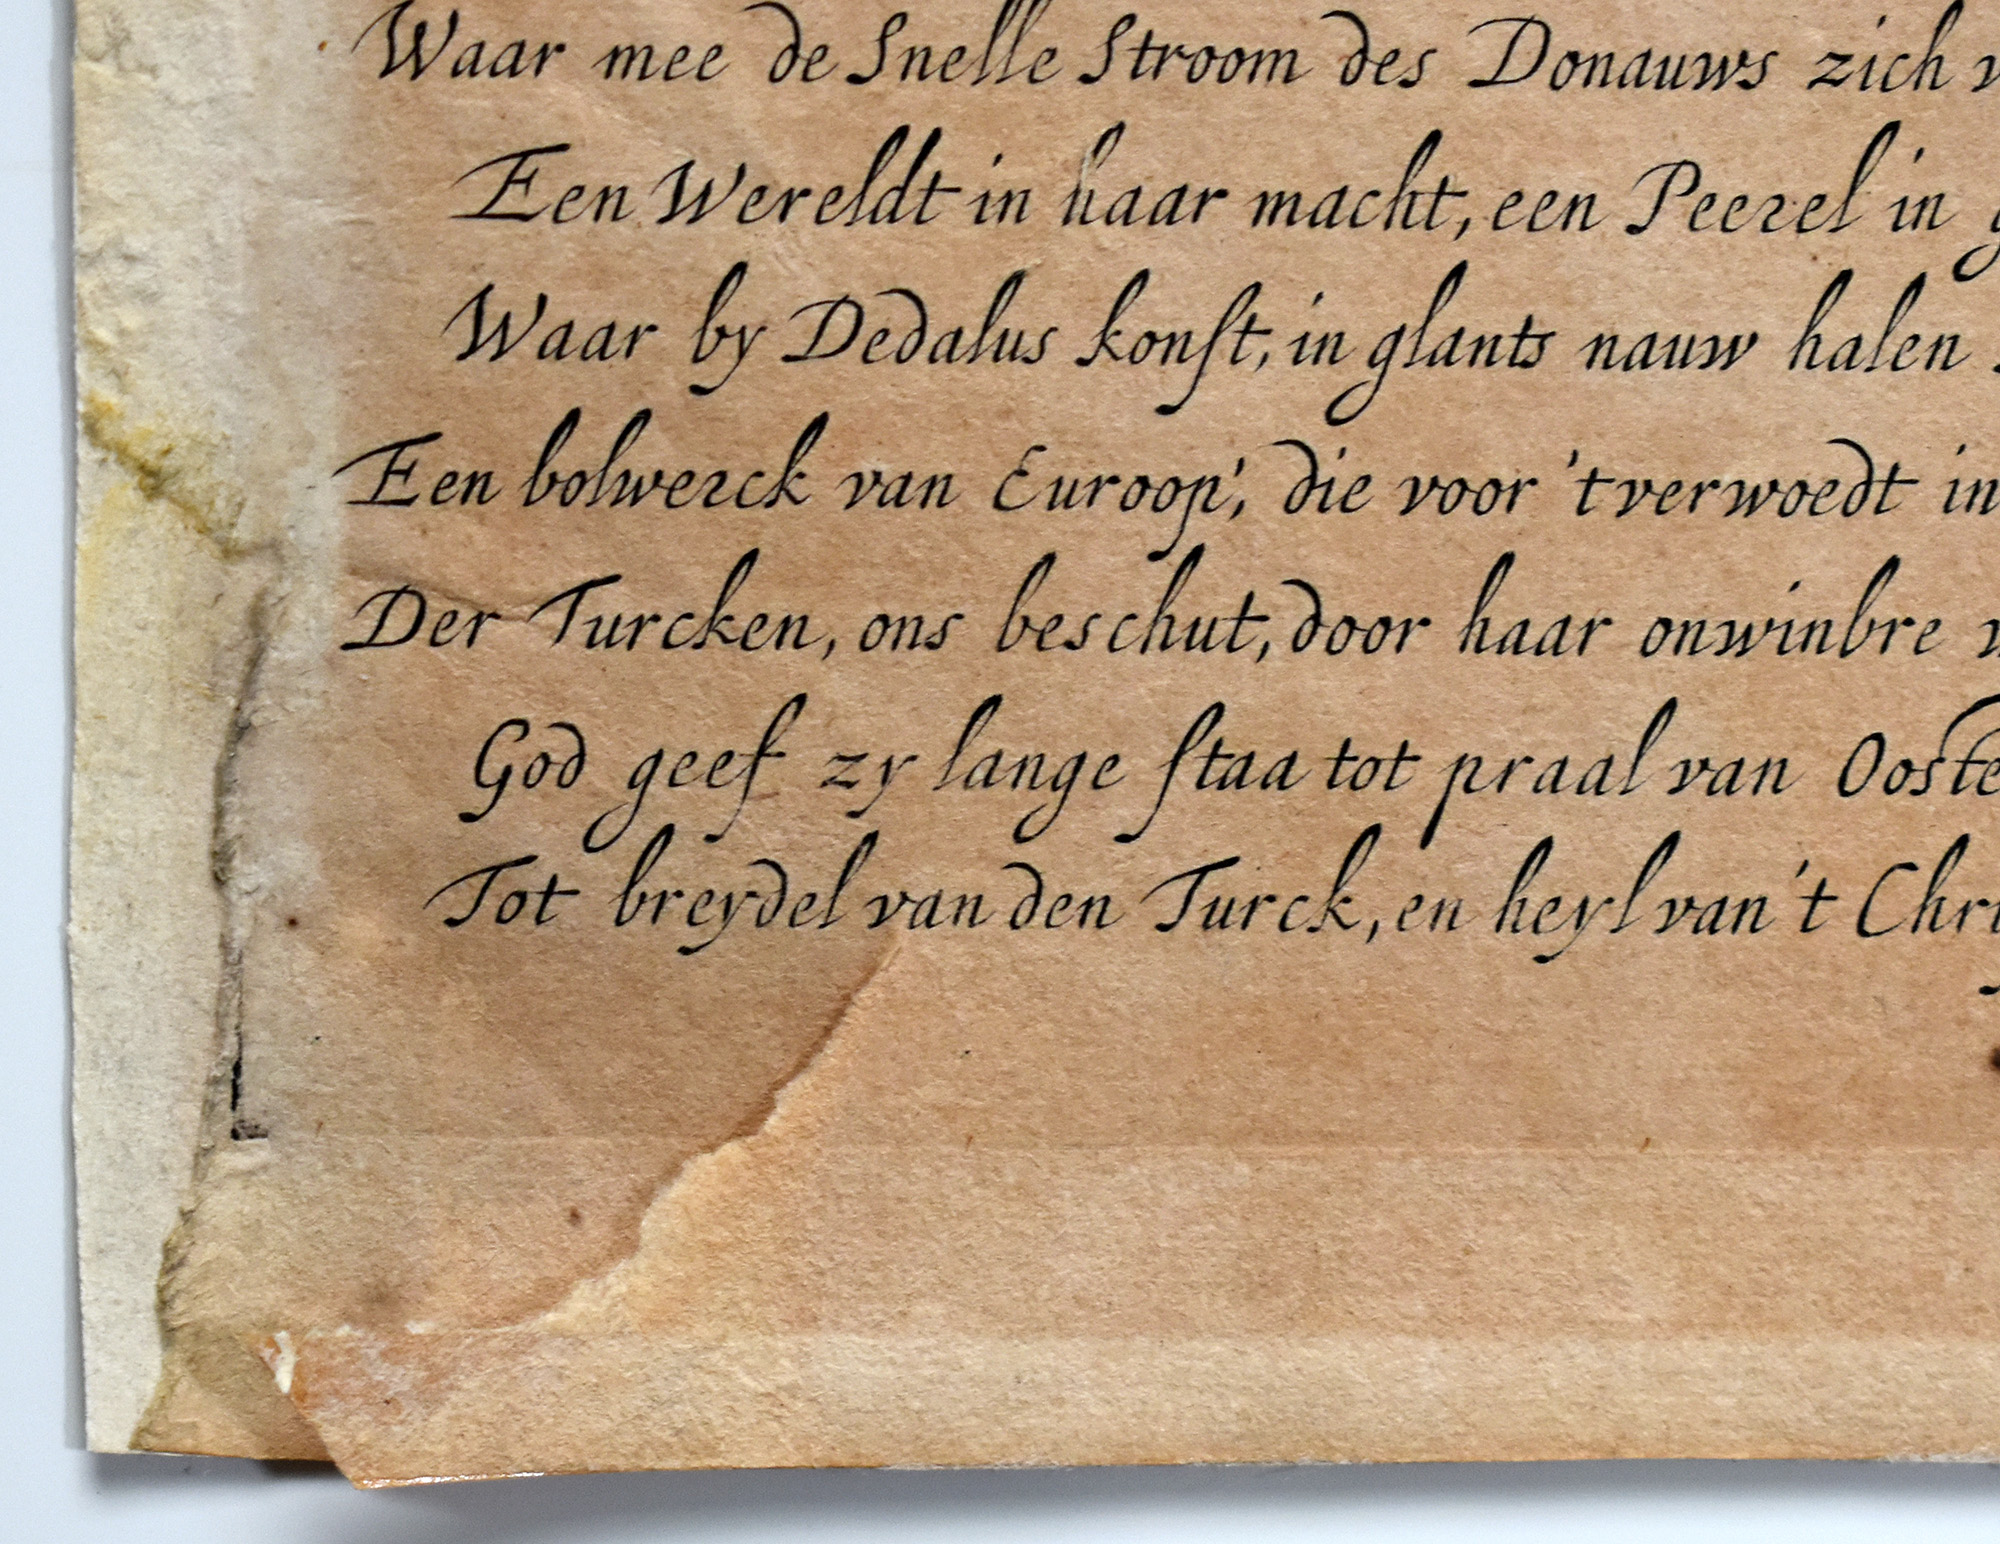 Waar mee de Snelle Stroom des Donauws zich
Een Wereldt in haar macht, een Peerel in
Waar by Dedalus konst, in glants nauw halen
Een bolwerck van Euroop', die voor 't verwoedt in
Der Turcken, ons beschut, door haar onwinbre
God geef zy lange staa tot praal van Ooste
Tot breydel van den Turck, en heyl van 't Chri